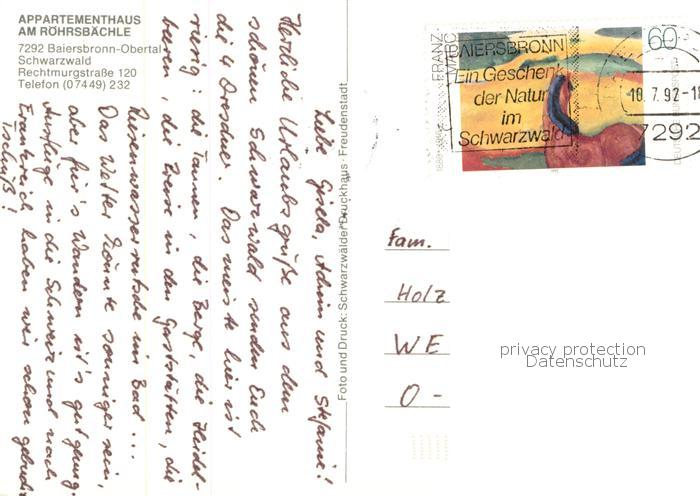 APPARTEMENTHAUS
AM RÖHRSBÄCHLE
7292 Baiersbronn-Obertal
Schwarzwald
Rechtmurgstraße 120
Telefon (07449) 232
Liebe Gisela, Achim und Stefanie!
Herzliche Urlaubsgrüße aus dem
schönen Schwarzwald senden Euch
die 4 Dresdner. Das meiste hier ist
riesig: die Tannen, die Berge, die Heidel-
beeren, die Preise in den Gaststätten, die
Riesenwasserrutsche im Bad...
Das Wetter könnte sonniger sein,
aber für's Wandern ist's gut genug.
Ausflüge in die Schweiz und nach
Frankreich haben wir schon
Tschüß!
Foto und Druck: Schwarzwälder Druckhaus · Freudenstadt
FRANZ
MARC
60
BAIERSBRONN
Ein Geschenk
der Natur
im
Schwarzwald
10.7.92-18
7292
Fam.
Holz
WE
O -
privacy protection
Datenschutz